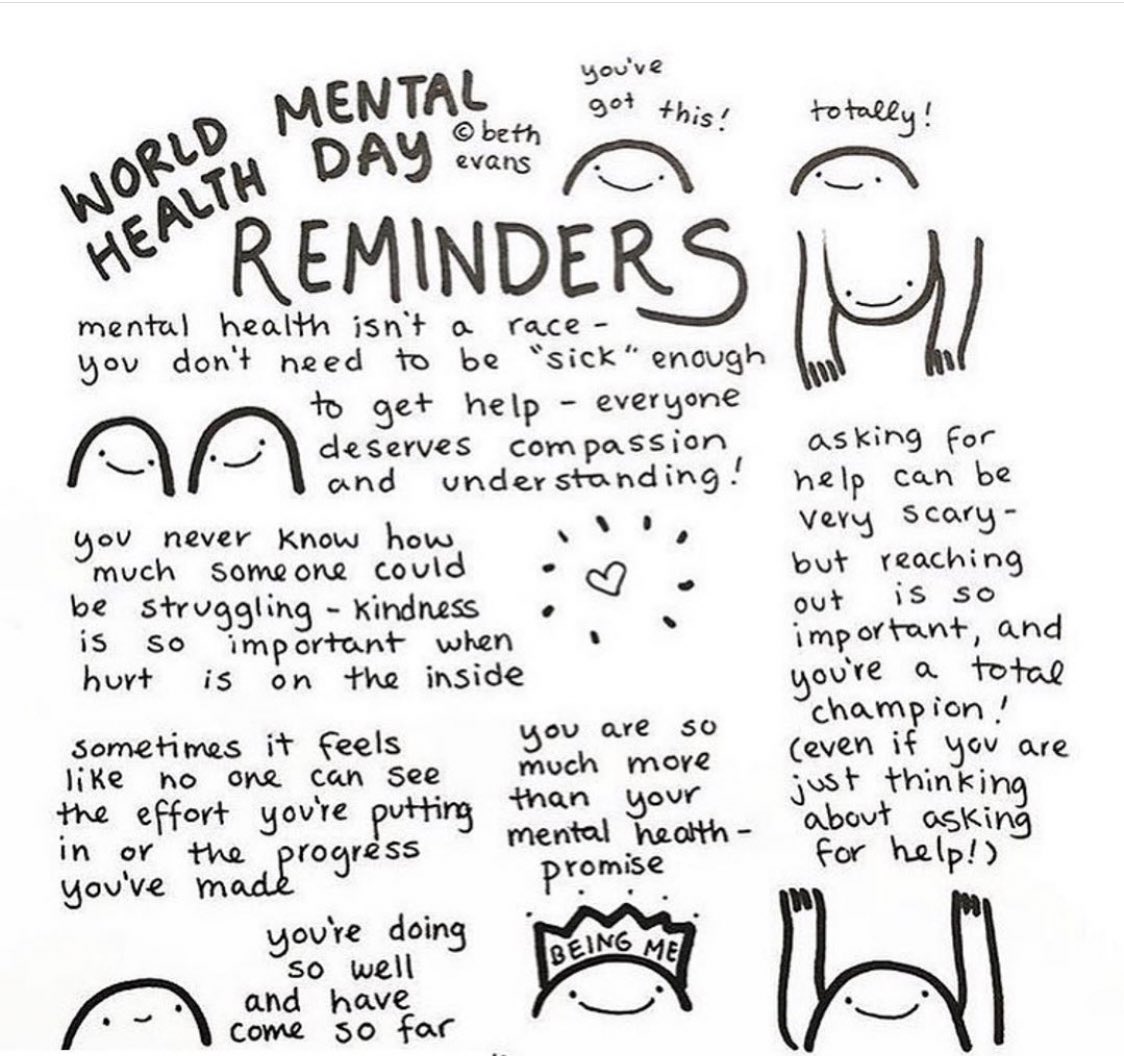 WORLD MENTAL
HEALTH DAY
© beth
evans
REMINDERS
you've
got this!
totally!
mental health isn't a race -
you don't need to be "sick" enough
to get help - everyone
deserves compassion
and understanding!
you never know how
much someone could
be struggling - kindness
is so important when
hurt is on the inside
asking for
help can be
very scary -
but reaching
out is so
important, and
you're a total
champion!
(even if you are
just thinking
about asking
for help!)
sometimes it feels
like no one can see
the effort you're putting
in or the progress
you've made
you're doing
so well
and have
come so far
you are so
much more
than your
mental health -
promise
BEING ME